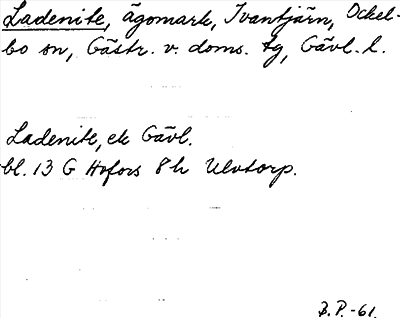 Ladenite, ägomark, Ivantjärn, Ockel-
bo sn, Gästr. v. doms. tg, Gävl. l.
Ladenite, ek Gävl.
bl. 13 G Hofors 8h Ulvtorp.
B.P.-61.